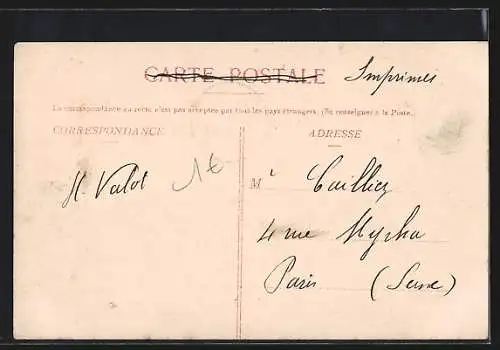 CARTE POSTALE
Imprimés
La correspondance au recto n'est pas acceptée par tous les pays étrangers. (Se renseigner à la Poste.)
CORRESPONDANCE
ADRESSE
H. Valot
1€
Mr Caillier
4 rue Myrha
Paris (Seine)